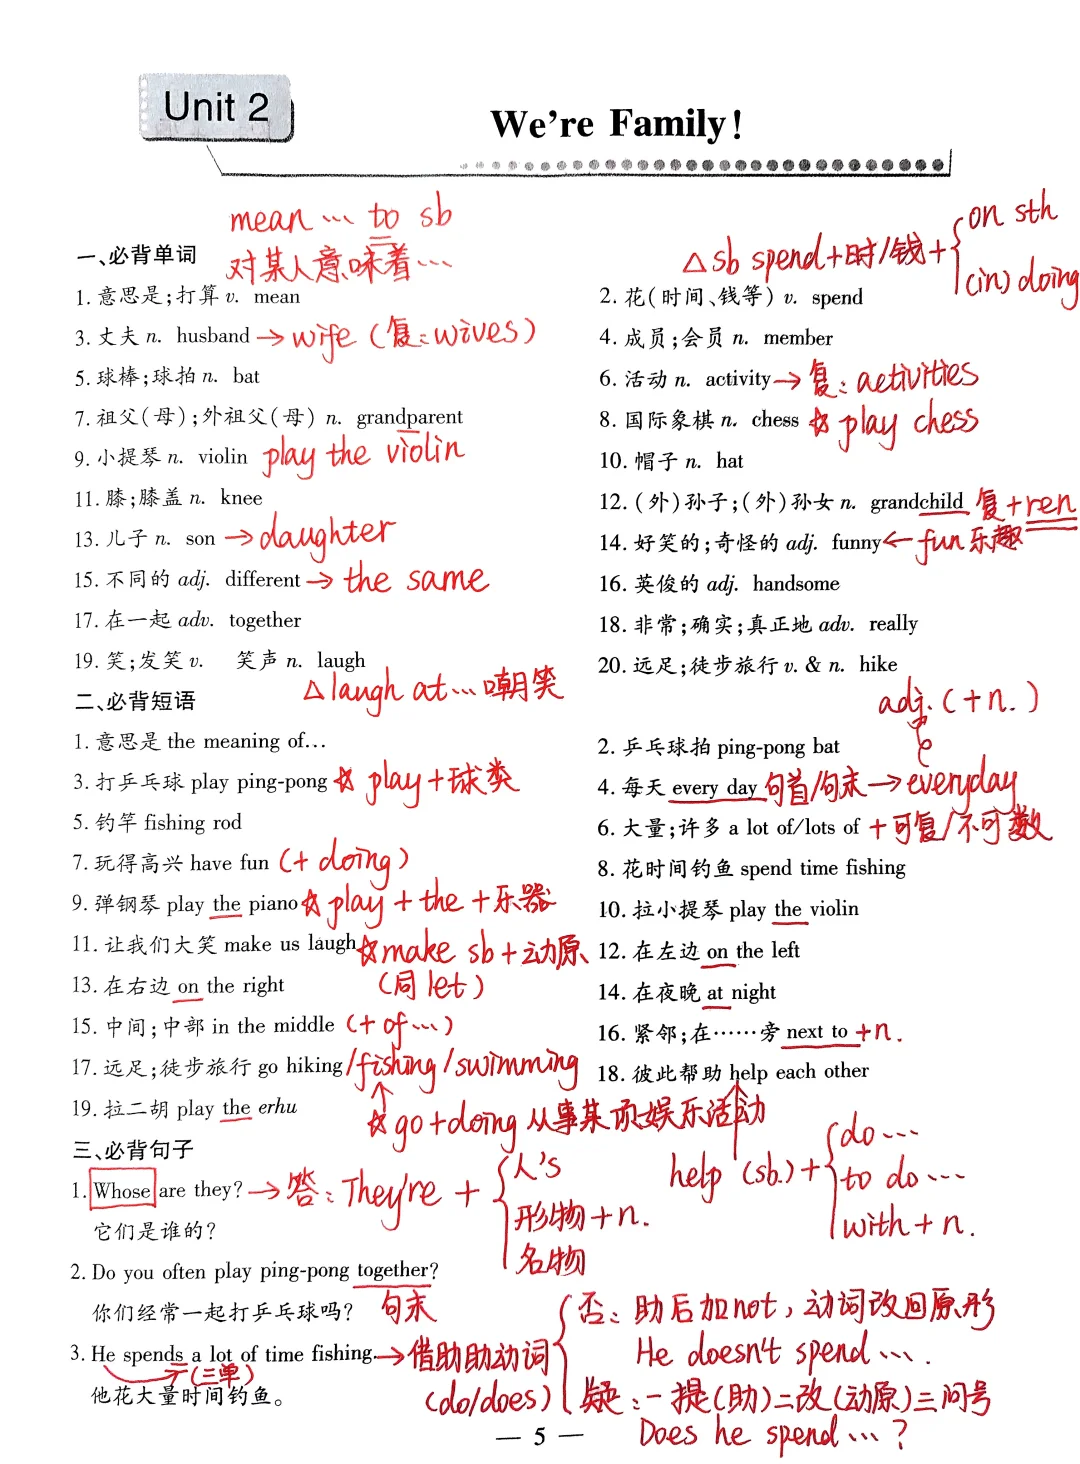 Unit 2
We're Family!
mean … to sb
对某人意味着…
△ sb spend+时/钱+ { on sth
(in) doing
一、必背单词
1. 意思是;打算 v. mean
2. 花(时间、钱等) v. spend
3. 丈夫 n. husband → wife (复: wives)
4. 成员;会员 n. member
5. 球棒;球拍 n. bat
6. 活动 n. activity → 复: activities
7. 祖父(母);外祖父(母) n. grandparent
8. 国际象棋 n. chess ☆ play chess
9. 小提琴 n. violin play the violin
10. 帽子 n. hat
11. 膝;膝盖 n. knee
12. (外)孙子;(外)孙女 n. grandchild 复+ren
13. 儿子 n. son → daughter
14. 好笑的;奇怪的 adj. funny ← fun 乐趣
15. 不同的 adj. different → the same
16. 英俊的 adj. handsome
17. 在一起 adv. together
18. 非常;确实;真正地 adv. really
19. 笑;发笑 v. 笑声 n. laugh
20. 远足;徒步旅行 v. & n. hike
△ laugh at … 嘲笑
二、必背短语
adj. (+n.)
1. 意思是 the meaning of…
2. 乒乓球拍 ping-pong bat
3. 打乒乓球 play ping-pong ☆ play+球类
4. 每天 every day 句首/句末 → everyday
5. 钓竿 fishing rod
6. 大量;许多 a lot of/lots of +可复/不可数
7. 玩得高兴 have fun (+ doing)
8. 花时间钓鱼 spend time fishing
9. 弹钢琴 play the piano ☆ play + the +乐器
10. 拉小提琴 play the violin
11. 让我们大笑 make us laugh ☆ make sb+动原
(同 let)
12. 在左边 on the left
13. 在右边 on the right
14. 在夜晚 at night
15. 中间;中部 in the middle (+ of …)
16. 紧邻;在……旁 next to +n.
17. 远足;徒步旅行 go hiking /fishing /swimming
18. 彼此帮助 help each other
19. 拉二胡 play the erhu
☆ go+doing 从事某项娱乐活动
help (sb.)+ { do …
to do …
with + n.
三、必背句子
1. Whose are they? → 答: They're + { 人's
形物+n.
名物
它们是谁的?
2. Do you often play ping-pong together?
句末
你们经常一起打乒乓球吗?
3. He spends a lot of time fishing. → 借助助动词
(do/does)
(三单)
他花大量时间钓鱼。
否: 助后加not, 动词改回原形
He doesn't spend ….
疑: 一提(助)二改(动原)三问号
Does he spend …?
— 5 —